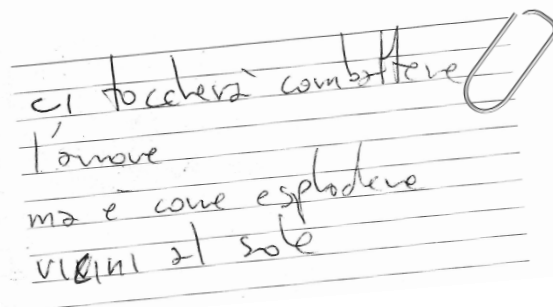 ci toccherà combattere
l'amore
ma è come esplodere
vicini al sole